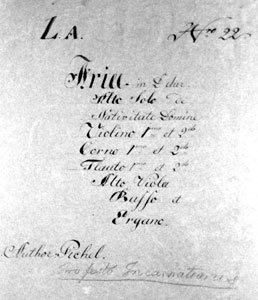 L A. Nro 22
Aria in E dur
Alto Solo De
Nativitate Domini
Violino 1mo et 2do
Corno 1mo et 2do
Flauto 1mo et 2do
Alto Viola
Basso et
Organo.
Author Pichel.
Pro festo Incarnationis